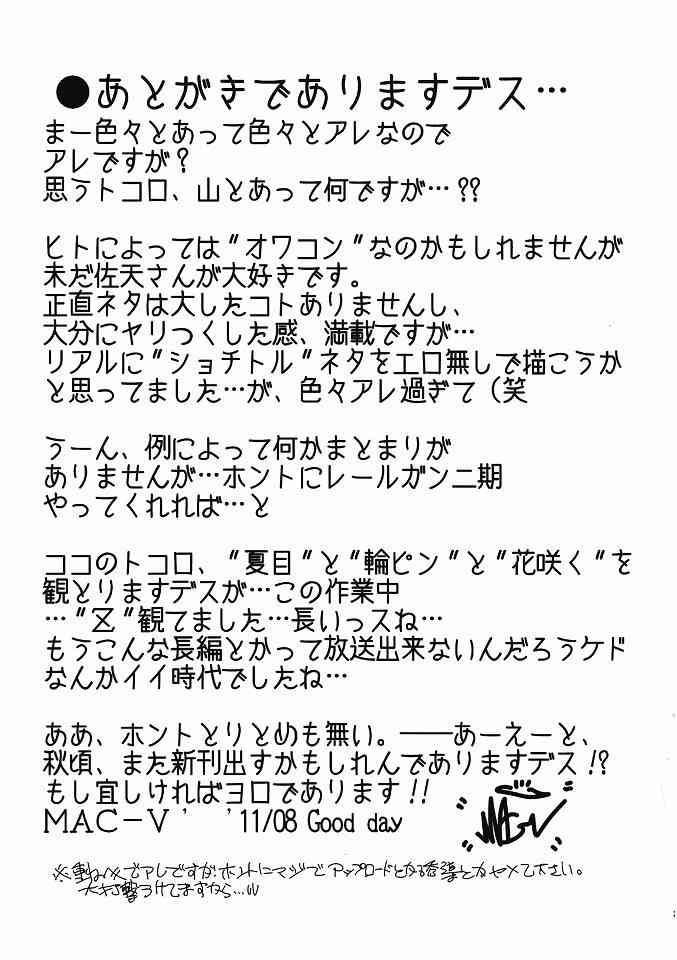 ●あとがきでありますデス…
まー色々とあって色々とアレなので
アレですが？
思うトコロ、山とあって何ですが…??
ヒトによっては〃オワコン〃なのかもしれませんが
未だ佐天さんが大好きです。
正直ネタは大したコトありませんし、
大分にヤリつくした感、満載ですが…
リアルに〃ショチトル〃ネタをエロ無しで描こうか
と思ってました…が、色々アレ過ぎて（笑
うーん、例によって何かまとまりが
ありませんが…ホントにレールガン二期
やってくれれば…と
ココのトコロ、〃夏目〃と〃輪ピン〃と〃花咲く〃を
観とりますデスが…この作業中
…〃Z〃観てました…長いっスね…
もうこんな長編とかって放送出来ないんだろうケド
なんかイイ時代でしたね…
ああ、ホントとりとめも無い。――あーえーと、
秋頃、また新刊出すかもしれんでありますデス!?
もし宜しければヨロであります!!
MAC－V’　’11/08 Good day
※重ね重ねアレですが、ホントにマジでアップロードとか誘導とかヤメて下さい。
大打撃うけてますから…